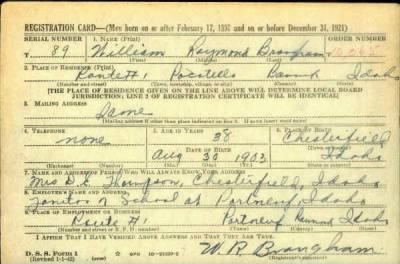 REGISTRATION CARD—(Men born on or after February 17, 1897 and on or before December 31, 1921)
SERIAL NUMBER 1. NAME (Print) ORDER NUMBER
89 William Raymond Brangham
(First) (Middle) (Last)
2. PLACE OF RESIDENCE (Print)
Route #1 Pocatello Bannock Idaho
(Number and street) (Town, township, village, or city) (County) (State)
[THE PLACE OF RESIDENCE GIVEN ON THE LINE ABOVE WILL DETERMINE LOCAL BOARD
JURISDICTION; LINE 2 OF REGISTRATION CERTIFICATE WILL BE IDENTICAL]
3. MAILING ADDRESS
Same
[Mailing address if other than place indicated on line 2. If same insert word same]
4. TELEPHONE 5. AGE IN YEARS 6. PLACE OF BIRTH
none 38 Chesterfield
DATE OF BIRTH (Town or county)
Aug 30 1903 Idaho
(Exchange) (Number) (Mo.) (Day) (Yr.) (State or country)
7. NAME AND ADDRESS OF PERSON WHO WILL ALWAYS KNOW YOUR ADDRESS
Mrs Thompson, Chesterfield, Idaho
8. EMPLOYER'S NAME AND ADDRESS
Janitor of School at Portneuf, Idaho
9. PLACE OF EMPLOYMENT OR BUSINESS
Route #1 Portneuf Bannock Idaho
(Number and street or R. F. D. number) (Town) (County) (State)
I AFFIRM THAT I HAVE VERIFIED ABOVE ANSWERS AND THAT THEY ARE TRUE.
D. S. S. Form 1
(Revised 1-1-42) (over) W. R. Brangham